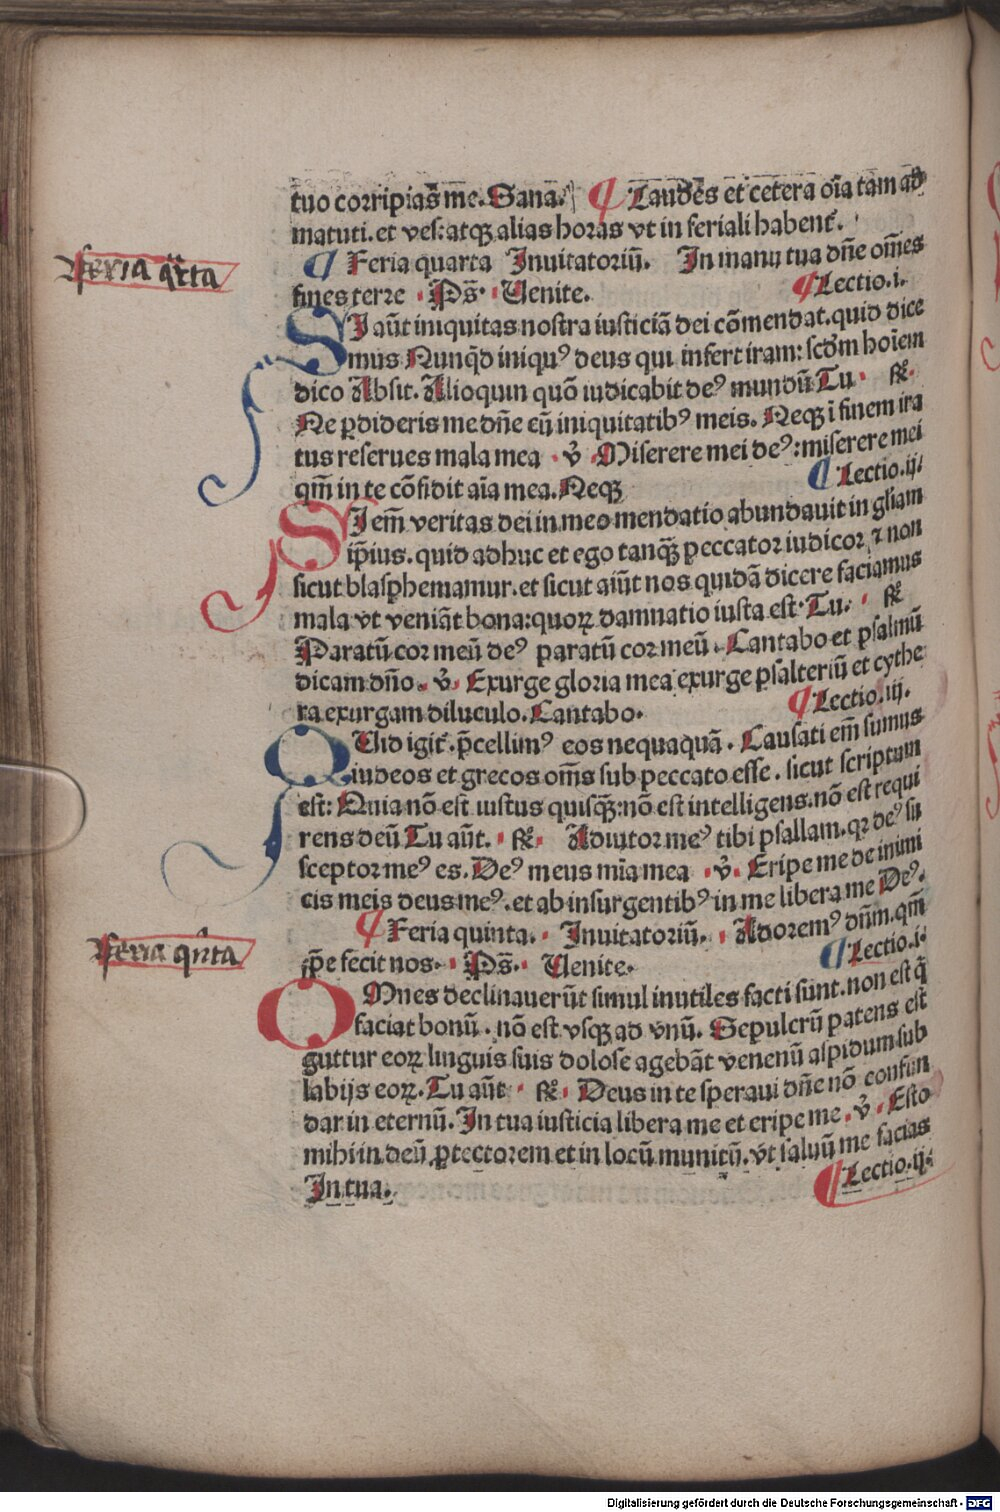 tuo corripias me. Sana. ¶ Laudes et cetera oı̃a tam ad
matuti. et ves: atqꝫ alias horas vt in feriali habent̃.
¶ Feria quarta Inuitatoriũ. In manu tua dñe om̃es
Feria qr̃ta
fines terre . Ps̃. Uenite. ¶ Lectio .i.
SI aũt iniquitas nostra iusticiã dei cõmendat. quid dice
mus Nunqd̃ iniquꝰ deus qui infert iram: scd̃m hoı̃em
dico Absit. Alioquin quõ iudicabit deꝰ mundũ Tu. ℟.
Ne ꝑdideris me dñe cũ iniquitatibꝰ meis. Neqꝫ ĩ finem ira
tus reserues mala mea . ℣. Miserere mei deꝰ: miserere mei
qm̃ in te cõfidit aı̃a mea. Neqꝫ ¶ Lectio .ij.
SI em̃ veritas dei in meo mendatio abundauit in gl̃iam
ip̃ius. quid adhuc et ego tanqꝫ̃ peccator iudicor, ⁊ non
sicut blasphemamur. et sicut aiũt nos quidã dicere faciamus
mala vt veniãt bona: quoꝝ damnatio iusta est. Tu. ℟.
Paratũ cor meũ deꝰ paratũ cor meũ. Cantabo et psalmũ
dicam dño. ℣. Exurge gloria mea exurge psalteriũ et cythe
ra exurgam diluculo. Cantabo. ¶ Lectio .iij.
QUid igit̃. p̃cellimꝰ eos nequaquã. Causati em̃ sumus
iudeos et grecos om̃s sub peccato esse. sicut scriptum
est: Quia nõ est iustus quisqꝫ̃: nõ est intelligens. nõ est requi
rens deũ Tu aũt. ℟. Adiutor meꝰ tibi psallam. qꝛ deꝰ su
sceptor meꝰ es. Deꝰ meus mı̃a mea . ℣. Eripe me de inimi
cis meis deus meꝰ. et ab insurgentibꝰ in me libera me Deꝰ.
¶ Feria quinta. Inuitatoriũ. Adoremꝰ dñm. qm̃
Feria qñta
ip̃e fecit nos. Ps̃. Uenite. ¶ Lectio .i.
OMnes declinauerũt simul inutiles facti sunt. non est q̃
faciat bonũ. nõ est vsqꝫ ad vnũ. Sepulcrũ patens est
guttur eoꝝ linguis suis dolose agebãt venenũ aspidum sub
labijs eoꝝ. Tu aũt . ℟. Deus in te speraui dñe nõ confun
dar in eternũ. In tua iusticia libera me et eripe me. ℣. Esto
mihi in deũ ꝓtectorem et in locũ munitũ. vt saluũ me facias
In tua. ¶ Lectio .ij.
Digitalisierung gefördert durch die Deutsche Forschungsgemeinschaft - DFG